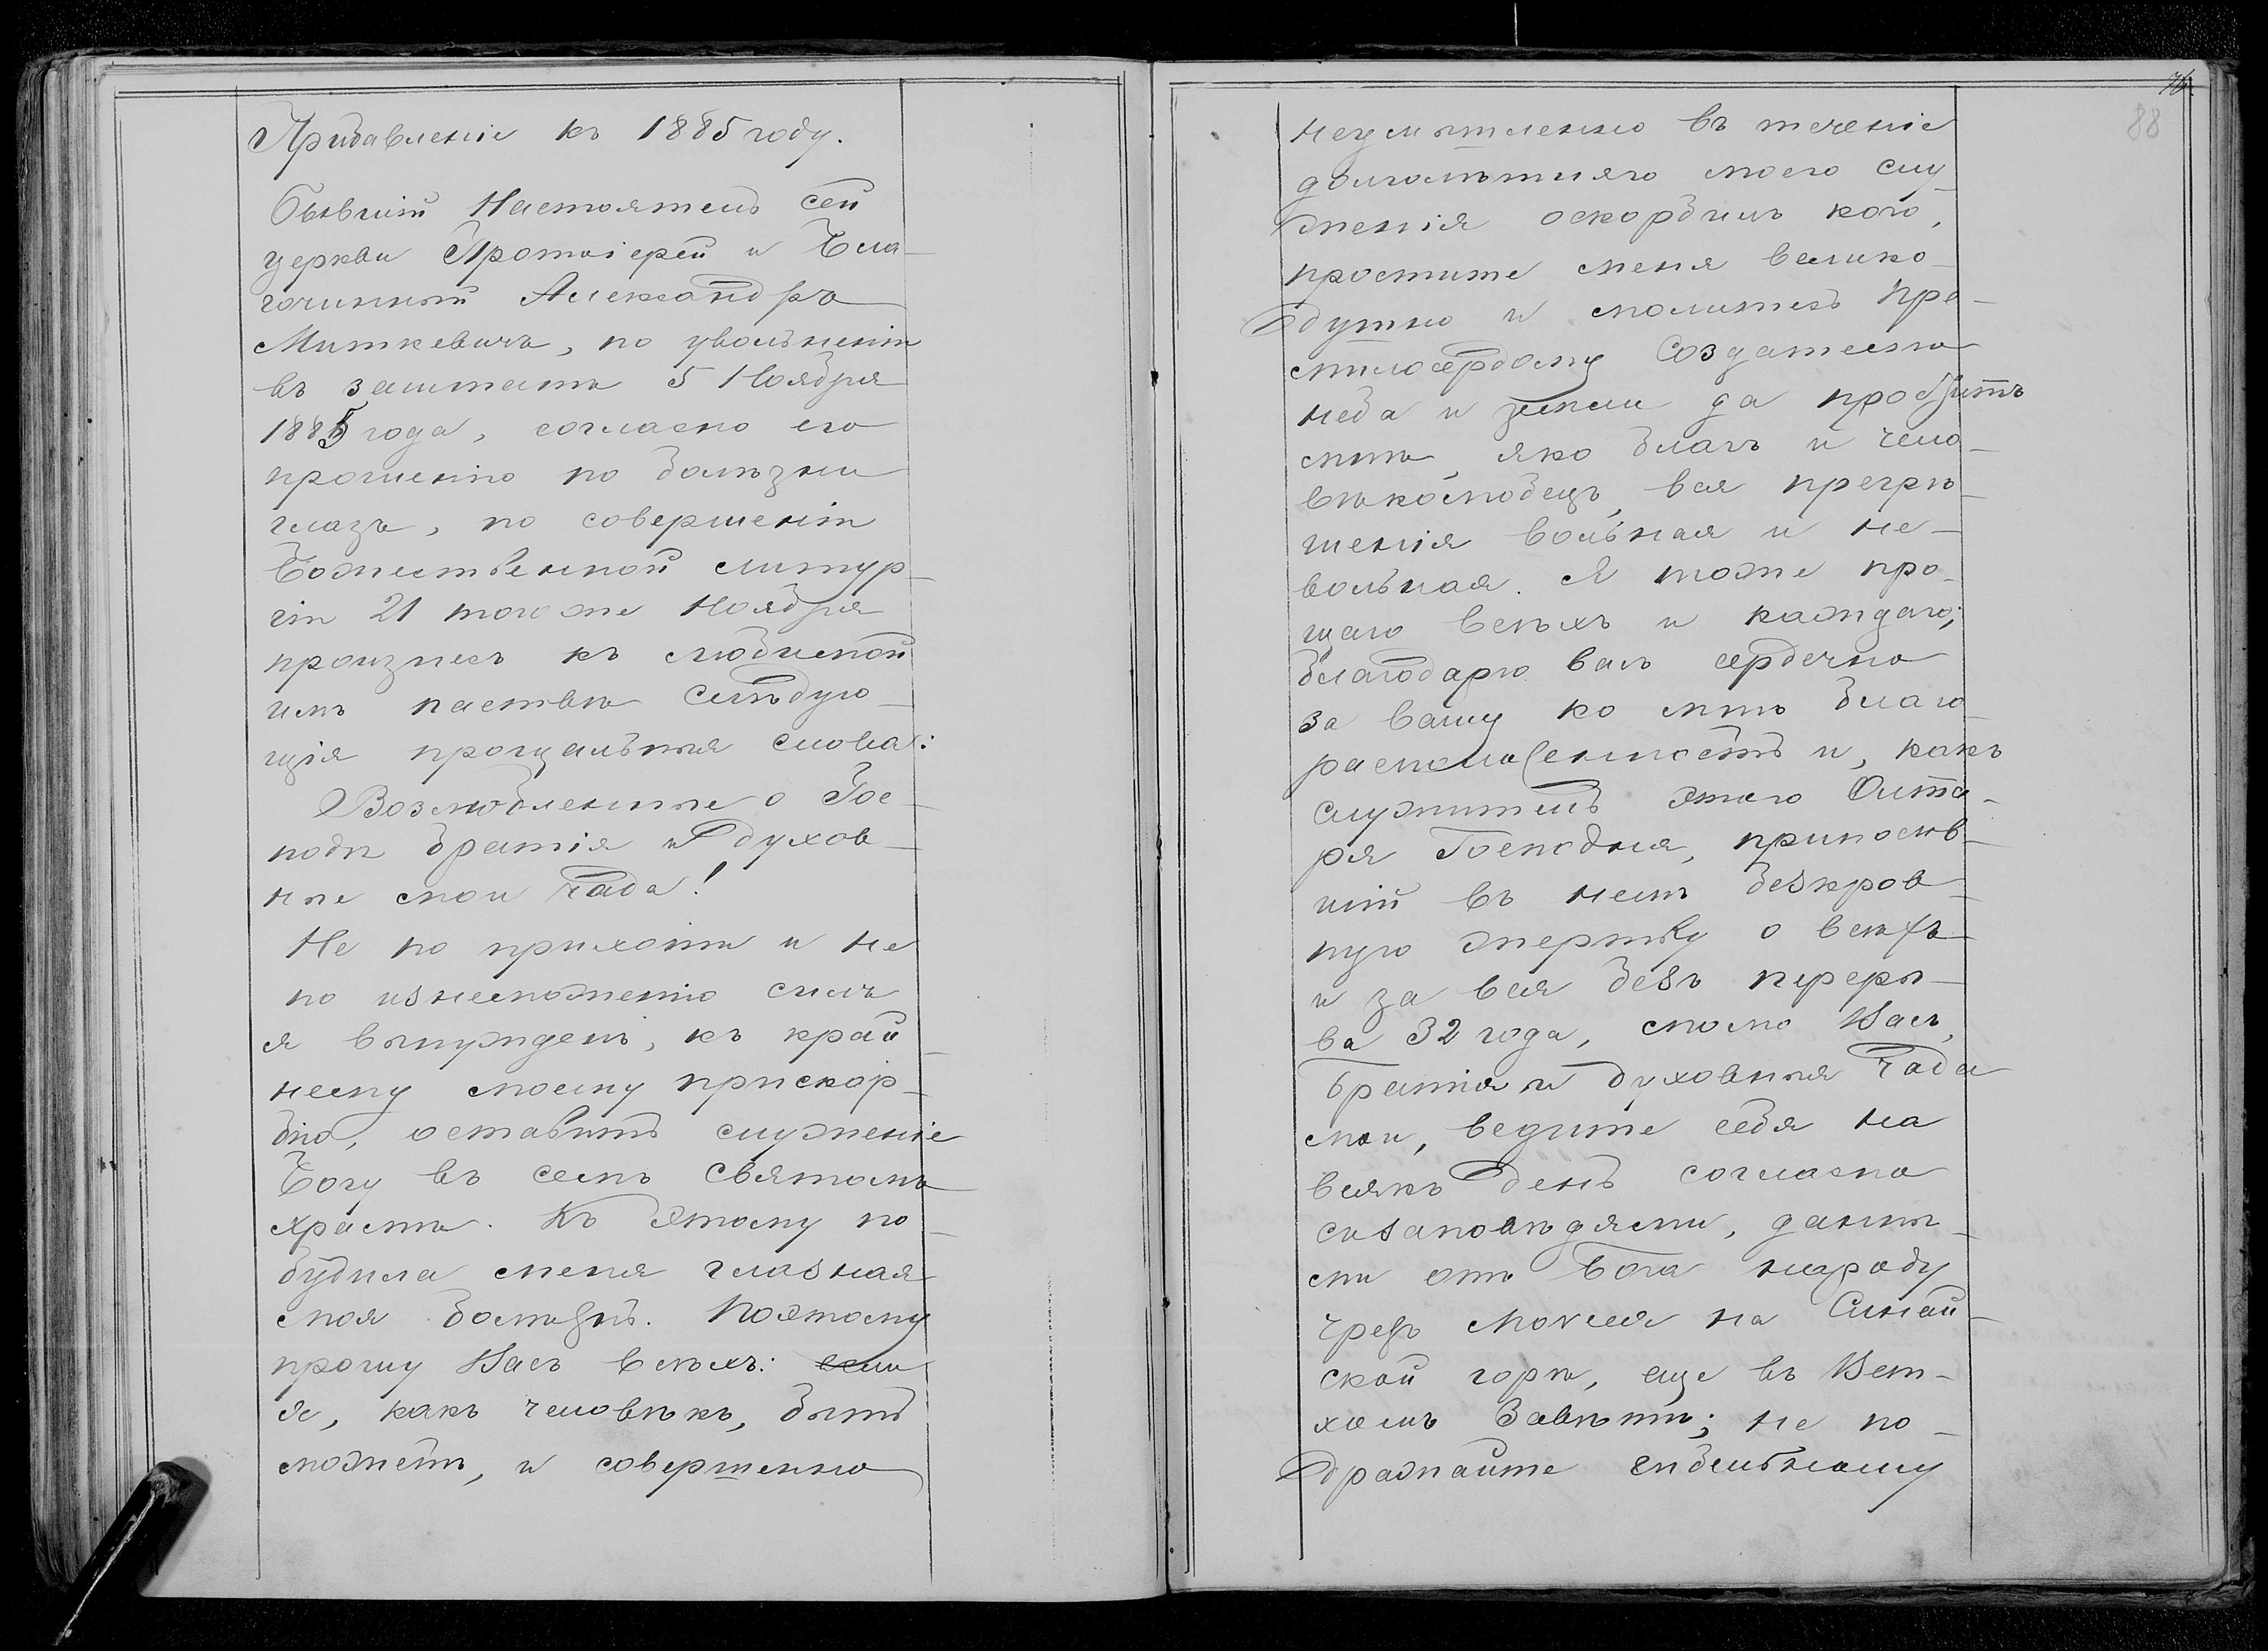 Прибавленіе къ 1885 году.
Бывшій Настоятель сей
церкви Протоіерей и Бла-
гочинный Александръ
Миткевичъ, по увольненіи
въ заштатъ 5 Ноября
1885 года, согласно его
прошенію по болѣзни
глазъ, по совершеніи
Божественной литур-
гіи 21 того же Ноября
произнесъ къ любимой
имъ паствѣ слѣдую-
щія прощальныя слова:
Возлюбленные о Гос-
подѣ братія и духов-
ные мои чада!
Не по прихоти и не
по изнеможенію силъ
я вынужденъ, къ край-
нему моему прискор-
бію, оставить служеніе
Богу въ семъ святомъ
храмѣ. Къ этому по-
будила меня глазная
моя болѣзнь. Поэтому
прошу Васъ всѣхъ: если
я, какъ человѣкъ, быть
можетъ, и совершенно
76.
88
неумышленно въ теченіе
долголѣтняго моего слу-
женія оскорбилъ кого,
простите меня велико-
душно и молитесь пре-
милосердому Создателю
неба и земли да проститъ
мнѣ, яко благъ и чело-
вѣколюбецъ, вся прегрѣ-
шенія вольная и не-
вольная. Я тоже про-
щаю всѣхъ и каждаго;
благодарю васъ сердечно
за вашу ко мнѣ благо-
расположенность и, какъ
служитель этого Олта-
ря Господня, приносив-
шій въ немъ безкров-
ную жертву о всѣхъ
и за вся безъ переры-
ва 32 года, молю Васъ,
братія и духовныя чада
мои, ведите себя на
всякъ день согласно
съ заповѣдями, данны-
ми отъ Бога народу
чрезъ Моѵсея на Синай-
ской горѣ, еще въ Вет-
хомъ Завѣтѣ; не по-
дражайте гибельному